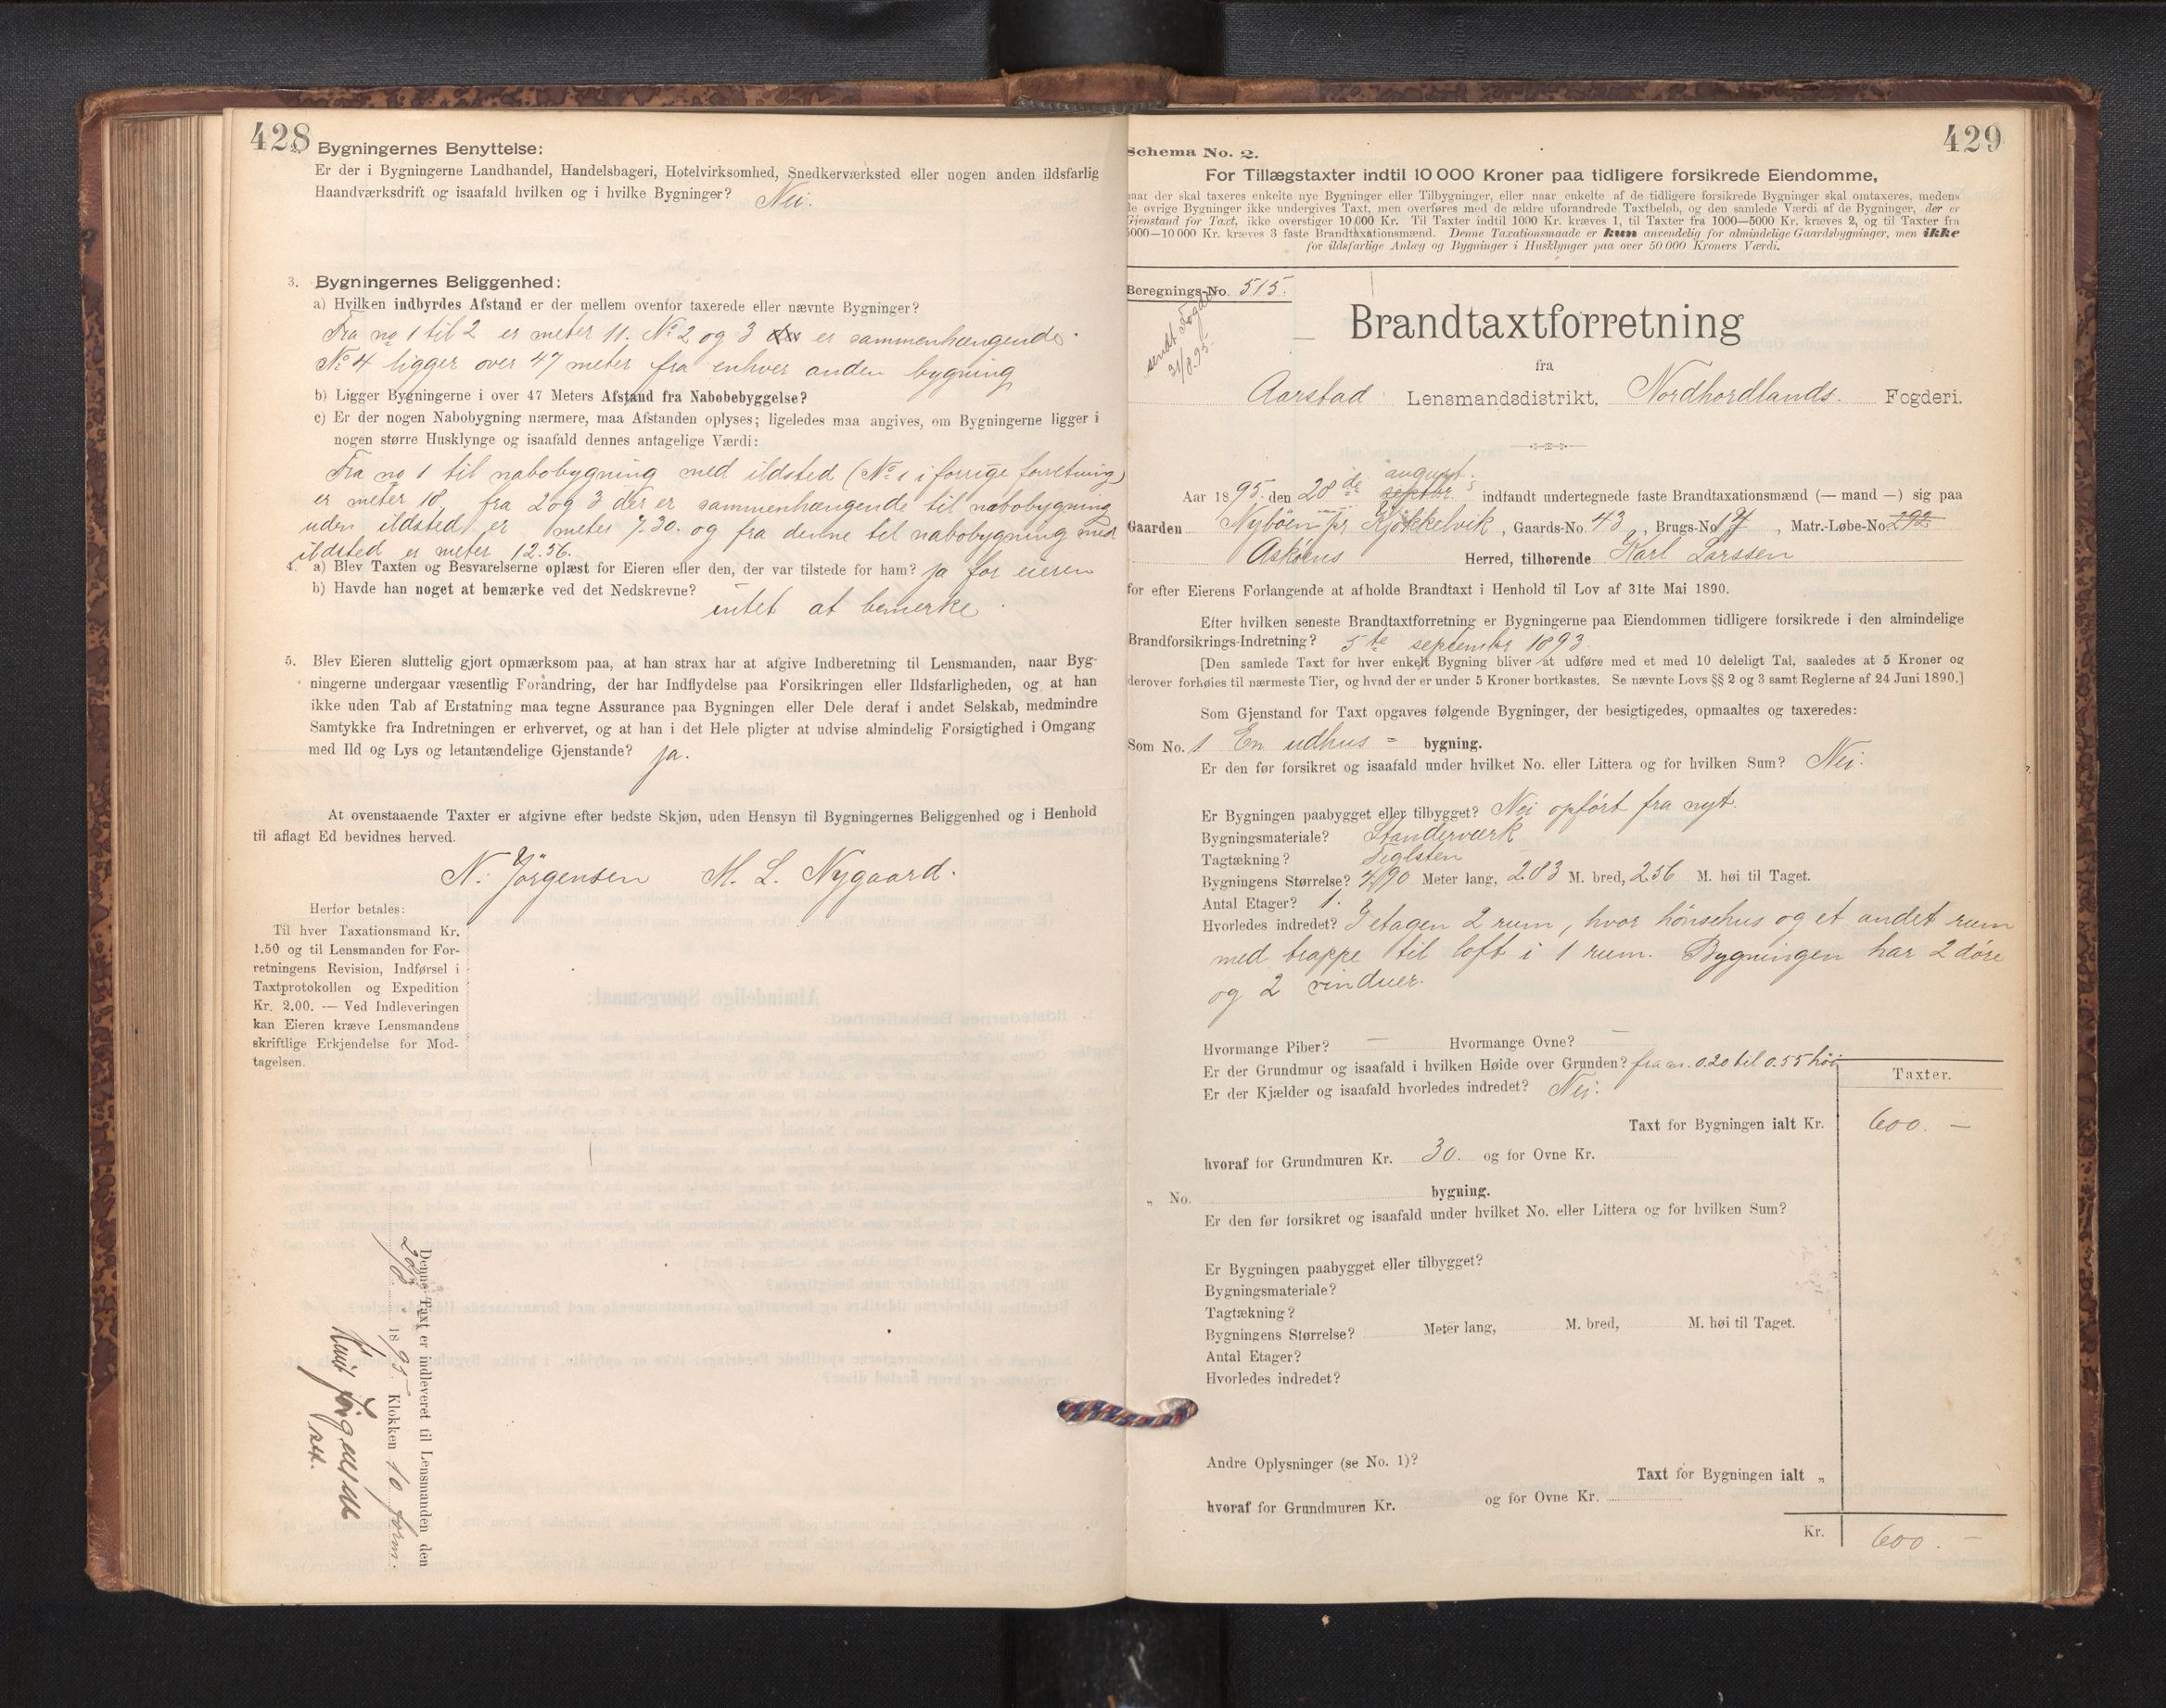 428
2. Bygningernes Benyttelse:
Er der i Bygningerne Landhandel, Handelsbageri, Hotelvirksomhed, Snedkerværksted eller nogen anden ildsfarlig
Haandværksdrift og isaafald hvilken og i hvilke Bygninger? Nei.
3. Bygningernes Beliggenhed:
a) Hvilken indbyrdes Afstand er der mellem ovenfor taxerede eller nævnte Bygninger?
Fra no 1 til 2 er meter 11. No 2 og 3 er sammenhængende.
No 4 ligger over 47 meter fra enhver anden bygning
b) Ligger Bygningerne i over 47 Meters Afstand fra Nabobebyggelse?
c) Er der nogen Nabobygning nærmere, maa Afstanden oplyses; ligeledes maa angives, om Bygningerne ligger i
nogen større Husklynge og isaafald dennes antagelige Værdi:
Fra no 1 til nabobygning med ildsted (No 1 i forrige forretning)
er meter 18, fra 2 og 3 der er sammenhængende til nabobygning
uden ildsted er meter 7.30. og fra denne til nabobygning med
ildsted er meter 12.56.
4. a) Blev Taxten og Besvarelserne oplæst for Eieren eller den, der var tilstede for ham? ja for eieren
b) Havde han noget at bemærke ved det Nedskrevne?
intet at bemerke.
5. Blev Eieren sluttelig gjort opmærksom paa, at han strax har at afgive Indberetning til Lensmanden, naar Byg-
ningerne undergaar væsentlig Forandring, der har Indflydelse paa Forsikringen eller Ildsfarligheden, og at han
ikke uden Tab af Erstatning maa tegne Assurance paa Bygningen eller Dele deraf i andet Selskab, medmindre
Samtykke fra Indretningen er erhvervet, og at han i det Hele pligter at udvise almindelig Forsigtighed i Omgang
med Ild og Lys og letantændelige Gjenstande? ja.
At ovenstaaende Taxter er afgivne efter bedste Skjøn, uden Hensyn til Bygningernes Beliggenhed og i Henhold
til aflagt Ed bevidnes herved.
N. Jörgensen M. L. Nygaard.
Herfor betales:
Til hver Taxationsmand Kr.
1.50 og til Lensmanden for For-
retningens Revision, Indførsel i
Taxtprotokollen og Expedition
Kr. 2.00. — Ved Indleveringen
kan Eieren kræve Lensmandens
skriftlige Erkjendelse for Mod-
tagelsen.
Denne Taxt er indleveret til Lensmanden den
29/8 1895 Klokken 10 form.
429
Schema No. 2.
For Tillægstaxter indtil 10 000 Kroner paa tidligere forsikrede Eiendomme,
naar der skal taxeres enkelte nye Bygninger eller Tilbygninger, eller naar enkelte af de tidligere forsikrede Bygninger skal omtaxeres, medens
de øvrige Bygninger ikke undergives Taxt, men overføres med de ældre uforandrede Taxtbeløb, og den samlede Værdi af de Bygninger, der er
Gjenstand for Taxt, ikke overstiger 10.000 Kr. Til Taxter indtil 1000 Kr. kræves 1, til Taxter fra 1000—5000 Kr. kræves 2, og til Taxter fra
5000—10 000 Kr. kræves 3 faste Brandtaxationsmænd. Denne Taxationsmaade er kun anvendelig for almindelige Gaardsbygninger, men ikke
for ildsfarlige Anlæg og Bygninger i Husklynger paa over 50 000 Kroners Værdi.
Beregnings-No. 515.
sendt Fogden
31/8.95.
Brandtaxtforretning
fra
Aarstad Lensmandsdistrikt, Nordhordlands. Fogderi.
august.
Aar 1895. den 28de septbr. indfandt undertegnede faste Brandtaxationsmænd (— mand —) sig paa
Gaarden Nyböen pr Kjökkelvik, Gaards-No. 43, Brugs-No. 17, Matr.-Løbe-No. 292
Askøens Herred, tilhørende Karl Larssen
for efter Eierens Forlangende at afholde Brandtaxt i Henhold til Lov af 31te Mai 1890.
Efter hvilken seneste Brandtaxtforretning er Bygningerne paa Eiendommen tidligere forsikrede i den almindelige
Brandforsikrings-Indretning? 5te septembr 1893.
[Den samlede Taxt for hver enkelt Bygning bliver at udføre med et med 10 deleligt Tal, saaledes at 5 Kroner og
derover forhøies til nærmeste Tier, og hvad der er under 5 Kroner bortkastes. Se nævnte Lovs §§ 2 og 3 samt Reglerne af 24 Juni 1890.]
Som Gjenstand for Taxt opgaves følgende Bygninger, der besigtigedes, opmaaltes og taxeredes:
Som No. 1 En udhus = bygning.
Er den før forsikret og isaafald under hvilket No. eller Littera og for hvilken Sum? Nei.
Er Bygningen paabygget eller tilbygget? Nei opført fra nyt.
Bygningsmateriale? Standerværk
Tagtækning? Teglsten
Bygningens Størrelse? 4.90 Meter lang, 2.83 M. bred, 2.56 M. høi til Taget.
Antal Etager? 1.
Hvorledes indredet? I etagen 2 rum, hvor hönsehus og et andet rum
med trappe til loft i 1 rum. Bygningen har 2 döre
og 2 vinduer.
Hvormange Piber? — Hvormange Ovne? —
Er der Grundmur og isaafald i hvilken Høide over Grunden? fra m. 0.20 til 0.55 høi
Er der Kjælder og isaafald hvorledes indredet? Nei.
Taxter.
Taxt for Bygningen ialt Kr. 600. —
hvoraf for Grundmuren Kr. 30. og for Ovne Kr.
„ No. bygning.
Er den før forsikret og isaafald under hvilket No. eller Littera og for hvilken Sum?
Er Bygningen paabygget eller tilbygget?
Bygningsmateriale?
Tagtækning?
Bygningens Størrelse? Meter lang, M. bred, M. høi til Taget.
Antal Etager?
Hvorledes indredet?
Andre Oplysninger (se No. 1)?
Taxt for Bygningen ialt „
hvoraf for Grundmuren Kr. og for Ovne Kr.
Kr. 600. —